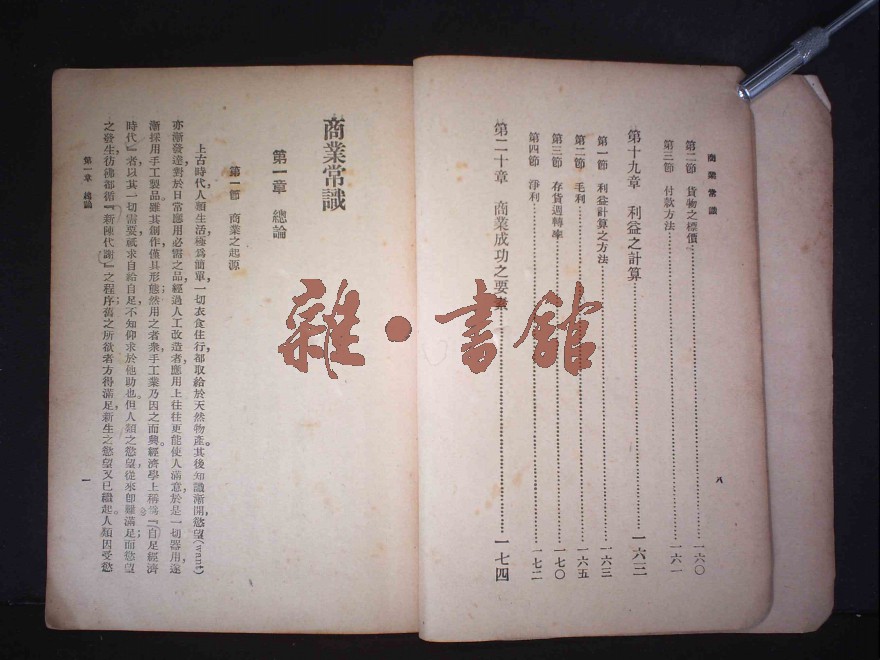 商業常識
第二節　貨物之標價……一六〇
第三節　付款方法……一六一
第十九章　利益之計算……一六三
第一節　利益計算之方法……一六三
第二節　毛利……一六五
第三節　存貨週轉率……一七〇
第四節　淨利……一七二
第二十章　商業成功之要素……一七四
八
商業常識
第一章　總論
第一節　商業之起源
上古時代，人類生活極爲簡單，一切衣食住行，都取給於天然物產。其後知識漸開，慾望(want)
亦漸發達，對於日常應用必需之品，經過人工改造者，應用上往往更能使人滿意，於是一切器用，遂
漸採用手工製品。雖其創作，僅具形態；然用之者衆，手工業乃因之而興。經濟學上稱爲『自足經濟
時代』者，以其一切需要，祇求自給自足，不知仰求於他助也。但人類之慾望，從來卽難滿足；而慾望
之發生，彷彿都循『新陳代謝』之程序；舊之所欲者，方得滿足，新生之慾望，又已繼起。人類因受慾
第一章　總論
一
雜·書館